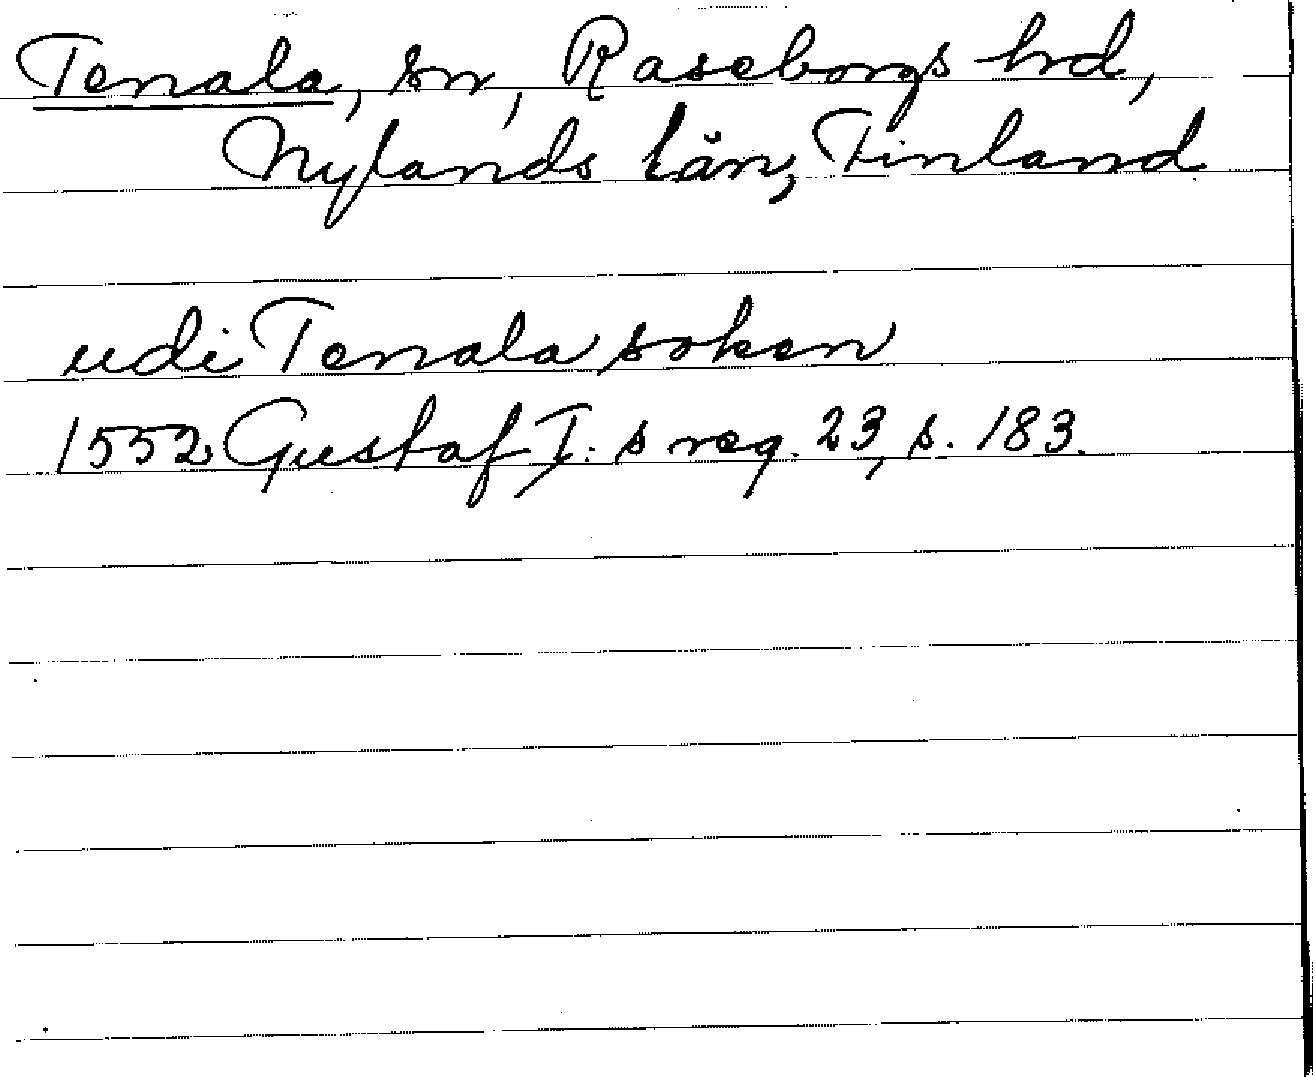 Tenala, sn, Raseborgs hd,
Nylands län, Finland
udi Tenala soken
1552 Gustaf I:s reg. 23, s. 183.